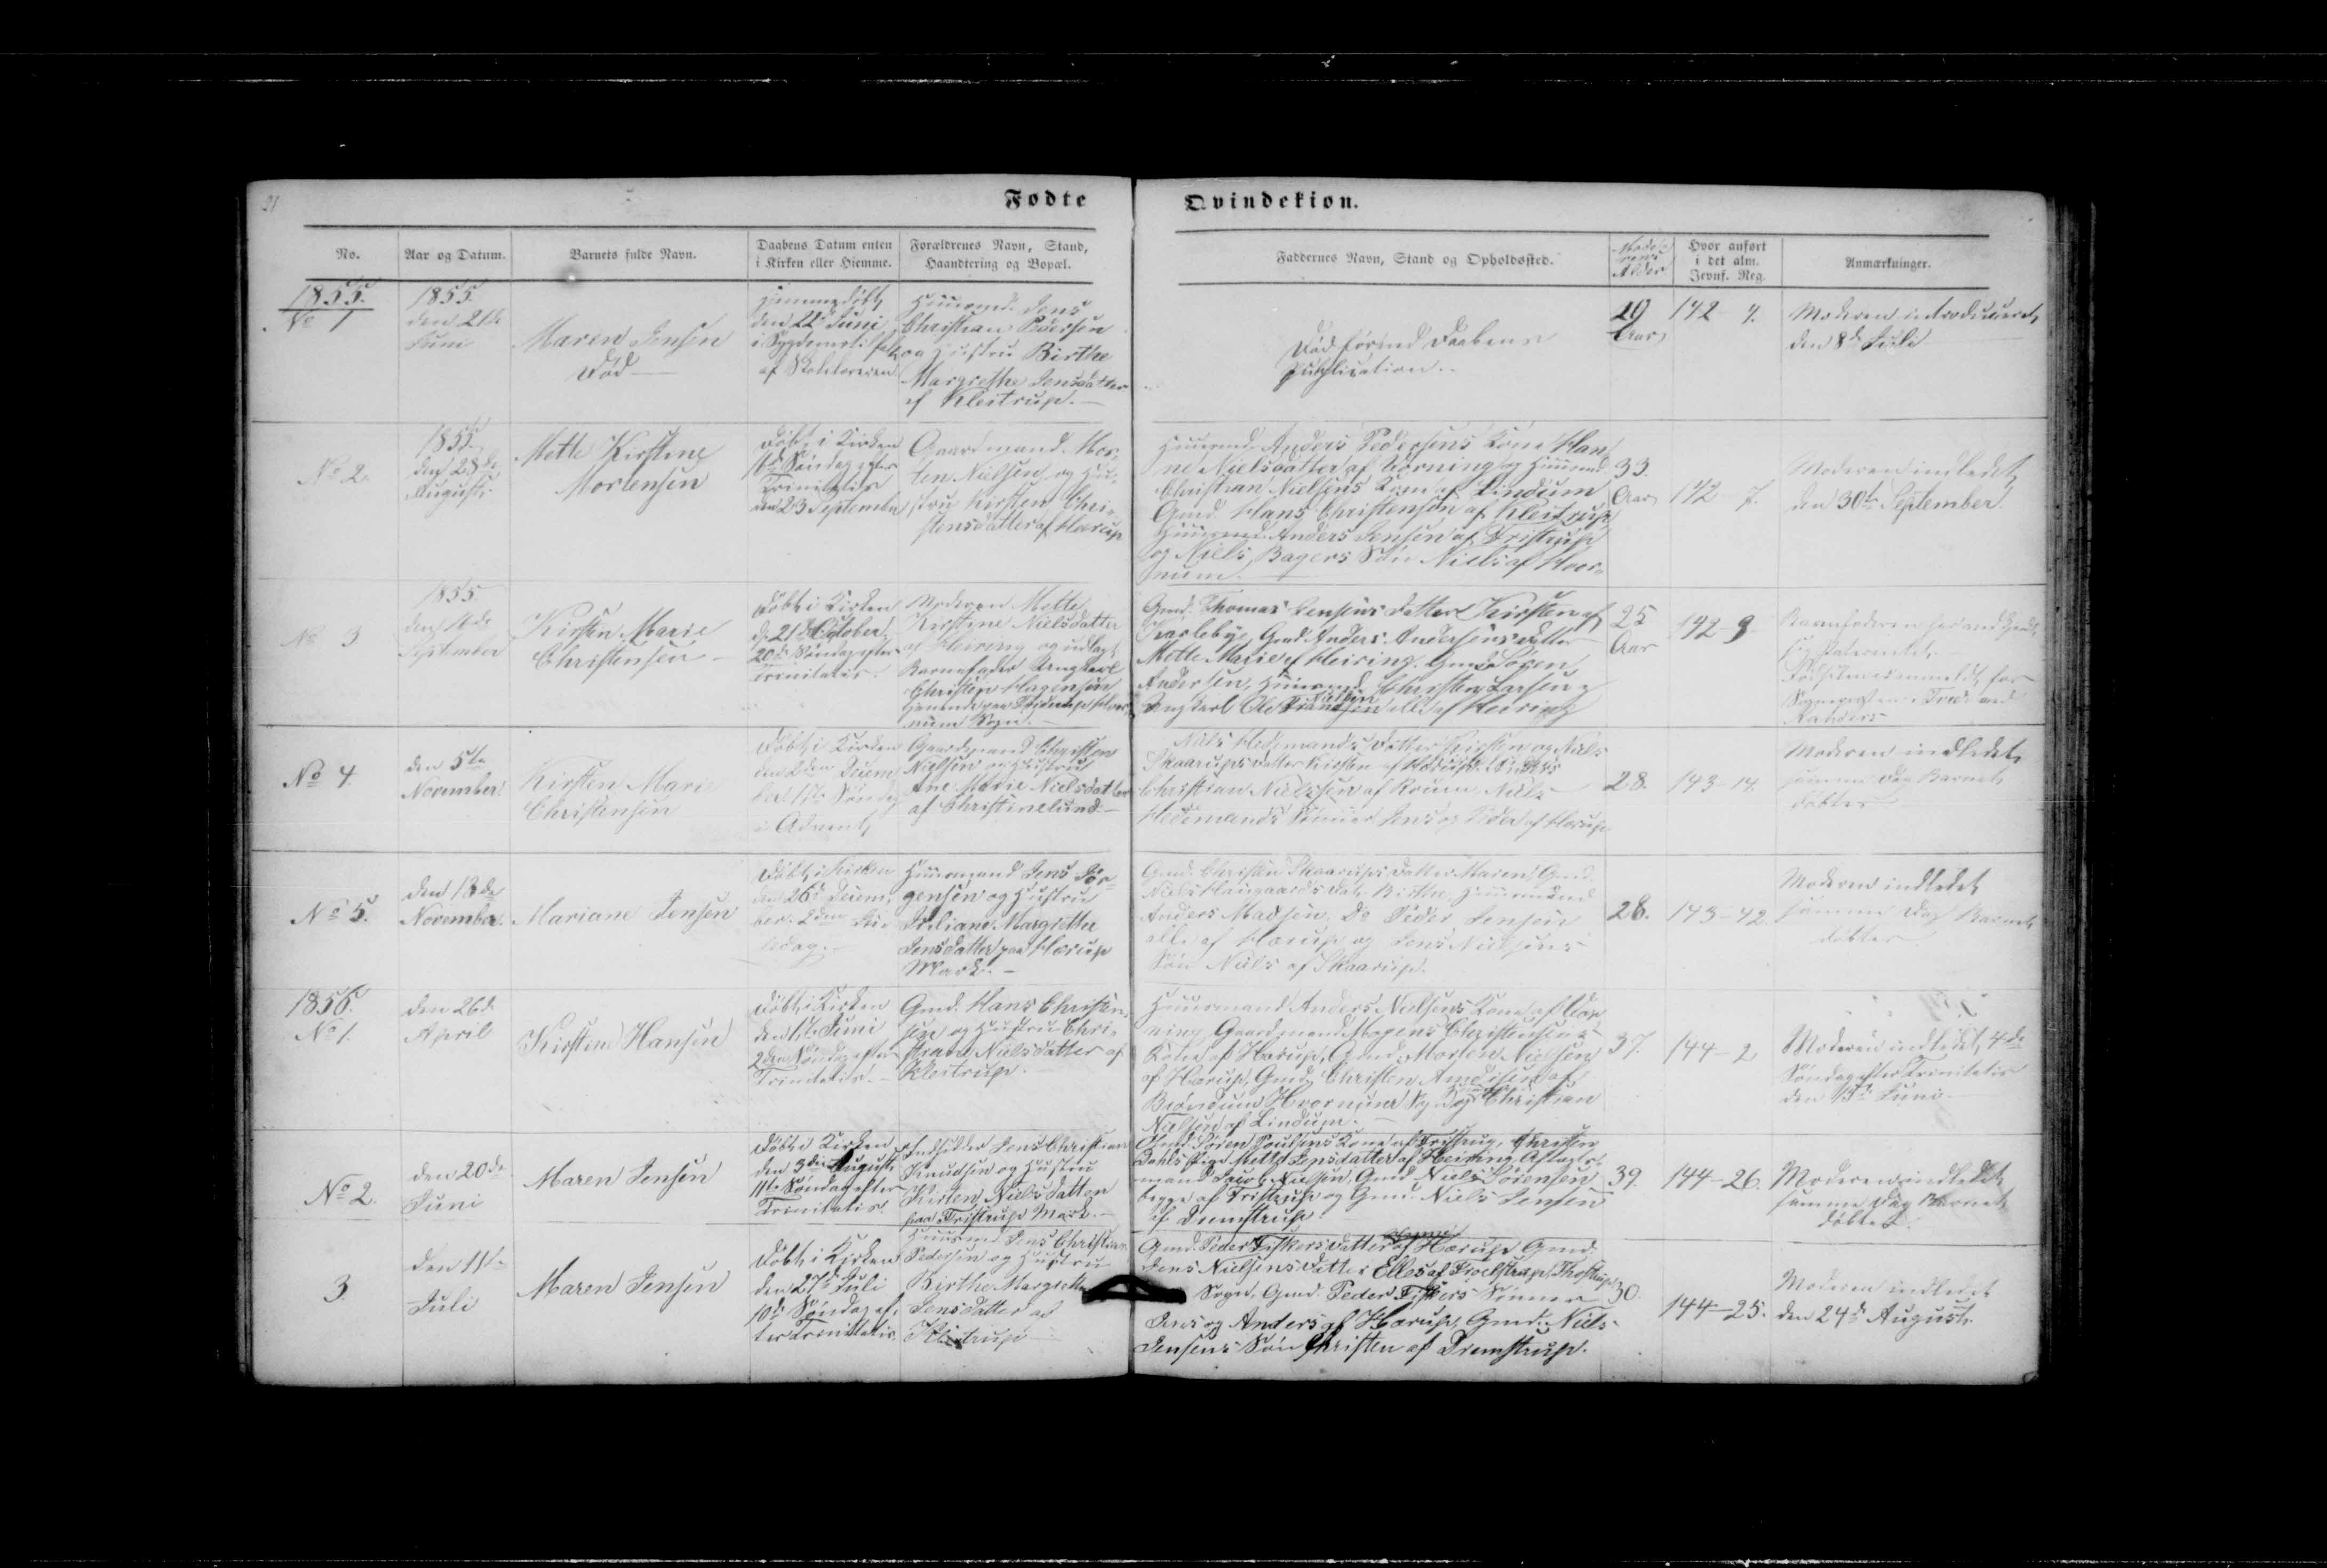 21
Fødte
Qvindekiøn.
No.
Aar og Datum.
Barnets fulde Navn.
Daabens Datum enten
i Kirken eller Hiemme.
Forældrenes Navn, Stand,
Haandtering og Bopæl.
Faddernes Navn, Stand og Opholdssted.
Alder
Hvor anført
i det alm.
Jevnf. Reg.
Anmærkninger.
1855.
No 1
1855.
den 21de
Juni
Maren Jensen
død
Hjemmedøbt
den 22de Juni
af Skolelæreren
Huusmd. Jens
Christian Pedersen
og Hustru Birthe
Margrethe Jensdatter
af Kleitrup.
Død førend Daabens
Publication.
29
Aar
142 7.
Moderen introduceret
den 8de Juli
No 2.
1855.
den 28de
August.
Mette Kirstine
Mortensen
Døbt i Kirken
16de Søndag efter
Trinitatis
den 23 September
Gaardmand Mor-
ten Nielsen og Hu-
stru Kirsten Chri-
stensdatter af Hærup
Huusmd. Anders Pedersens Kone Han
ne Nielsdatter af Vorning og Huusmd.
Christian Nielsens Kone af Lindum
Gmd. Hans Christensen af Kleitrup
Huusmd. Anders Jensen af Tristrup
og Niels Bagers Søn Niels af Hvor-
num.
33.
Aar
142 7.
Moderen indledet
den 30te September.
No 3
1855
September
Kirsten Marie
Christensen
Døbt i Kirken
d. 21de October
20de Søndag efter
Trinitatis.
Moderen Mette
Kirstine Nielsdatter
af Heiring og udlagt
Barnefader Ungkarl
Christen Mogensen
num Sogn.
Gmd. Thomas Jensens Datter Kirsten af
Gmd. Anders Andersens Datter
Mette Marie af Heiring. Gmd. Søren
Andersen, Huusmand Christen Larsen
Ungkarl Ole alle af Heiring
25
Aar
142-9
Barnefaderen har
Randers
No 4.
den 5te
November.
Kirsten Marie
Christensen
Døbt i Kirken
den 2den Decem
ber 1ste Søndag
i Advent
Gaardmand Christen
Nielsen og Hustru
Ane Marie Nielsdatter
af Christinelund.
Niels Hedemands Datter Kirsten og Niels
Skaarups Datter Kirsten af Hærup.
Christian Nielsen af Roum Niels
Hedemands Sønner Jens og Peder af Hærup
28.
143-14.
Moderen indledet
samme Dag Barnet
døbtes
No 5.
den 13de
November.
Mariane Jensen
Døbt i Kirken
den 26de Decem-
ber. 2den Jule
dag.
Huusmand Jens Jør-
gensen og Hustru
Juliane Margrethe
Jensdatter paa Hærup
Mark.
Gmd. Christen Skaarups Datter Maren, Gmd.
Birthe, Huusmand
Anders Madsen, Do Peder Jensen
alle af Hærup og Jens Nielsens
Søn Niels af Skaarup.
28.
143-42
Moderen indledet
samme Dag Barnet
døbtes
1856.
No 1.
den 26de
April
Kirstine Hansen
Døbt i Kirken
den 1ste Juni
2den Søndag efter
Trinitatis.
Gmd. Hans Christen-
sen og Hustru Chri-
stiane Nielsdatter af
Kleitrup.
Huusmand Anders Nielsens Kone af Vor
ning Gaardmand Mogens Christensens
Kone af Hærup, Gmd. Morten Nielsen
af Hærup, Gmd. Christen Andersen af
Brøndum Hvornum Sogn og Christian
Nielsen af Lindum.
37.
144-2
Moderen indledet 4de
Søndag efter Trinitatis
den 15de Juni.
No 2.
den 20de
Juni
Maren Jensen
Døbt i Kirken
den 3die August
11te Søndag efter
Trinitatis.
Indsidder Jens Christian
Knudsen og Hustru
Kirsten Nielsdatter
paa Tristrup Mark.
Gmd. Søren Poulsens Kone af Tristrup, Christen
Dahls Pige Mette Jensdatter af Heiring Aftægts-
mand Jacob Nielsen, Gmd. Niels Sørensen
begge af Tristrup og Gmd. Niels Jensen
af Dremstrup.
39.
144-26.
Moderen indledet
samme Dag Barnet
døbtes.
3.
den 11te
Juli
Maren Jensen
Døbt i Kirken
den 27de Juli
10de Søndag ef-
ter Trinitatis
Huusmd. Jens Christian
Pedersen og Hustru
Birthe Margrethe
Jensdatter af
Kleitrup
Gmd. Peder Fiskers Datter af Hærup Gmd.
Jens Nielsens Datter Elles af Troelstrup, Thostrup
Sogn, Gmd. Peder Fiskers Sønner
Jens og Anders af Hærup, Gmd. Niels
Jensens Søn Christen af Dremstrup.
30.
144-25.
Moderen indledet
den 24de August.